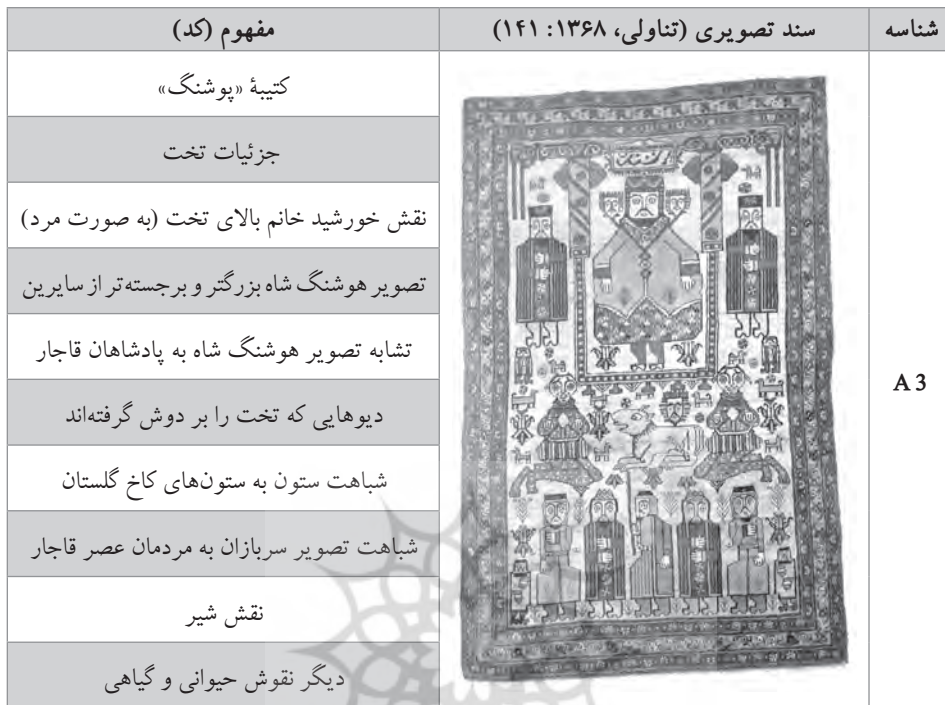 شناسه
سند تصویری (تناولی، ۱۳۶۸: ۱۴۱)
مفهوم (کد)
A 3
کتیبۀ «پوشنگ»
جزئیات تخت
نقش خورشید خانم بالای تخت (به صورت مرد)
تصویر هوشنگ شاه بزرگتر و برجسته‌تر از سایرین
تشابه تصویر هوشنگ شاه به پادشاهان قاجار
دیوهایی که تخت را بر دوش گرفته‌اند
شباهت ستون به ستون‌های کاخ گلستان
شباهت تصویر سربازان به مردمان عصر قاجار
نقش شیر
دیگر نقوش حیوانی و گیاهی